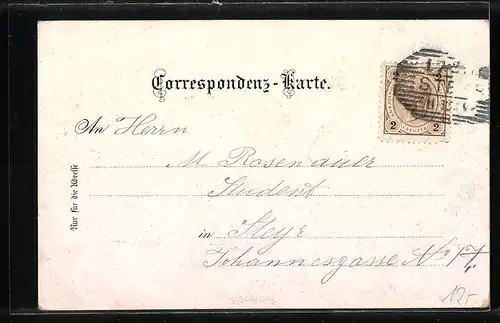 Correspondenz-Karte.
2 2
KREUZER
2 2
An Herrn
M. Rosenauer
Student
in Steyr
Johannesgasse No 17
Nur für die Adresse
12.-